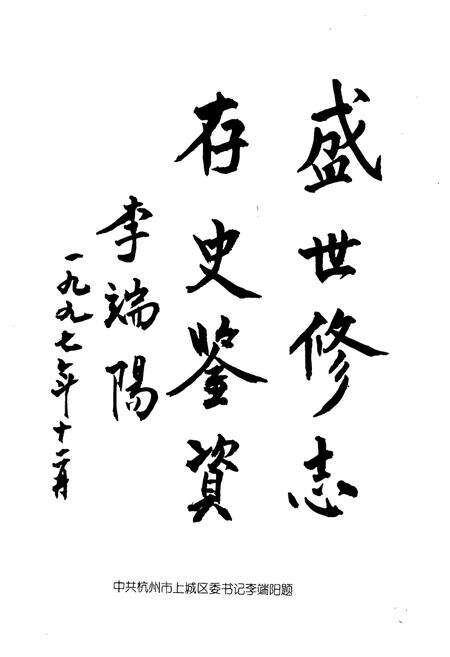 盛世修志
存史鉴資
李端陽
一九九七年十二月
中共杭州市上城区委书记李端阳题